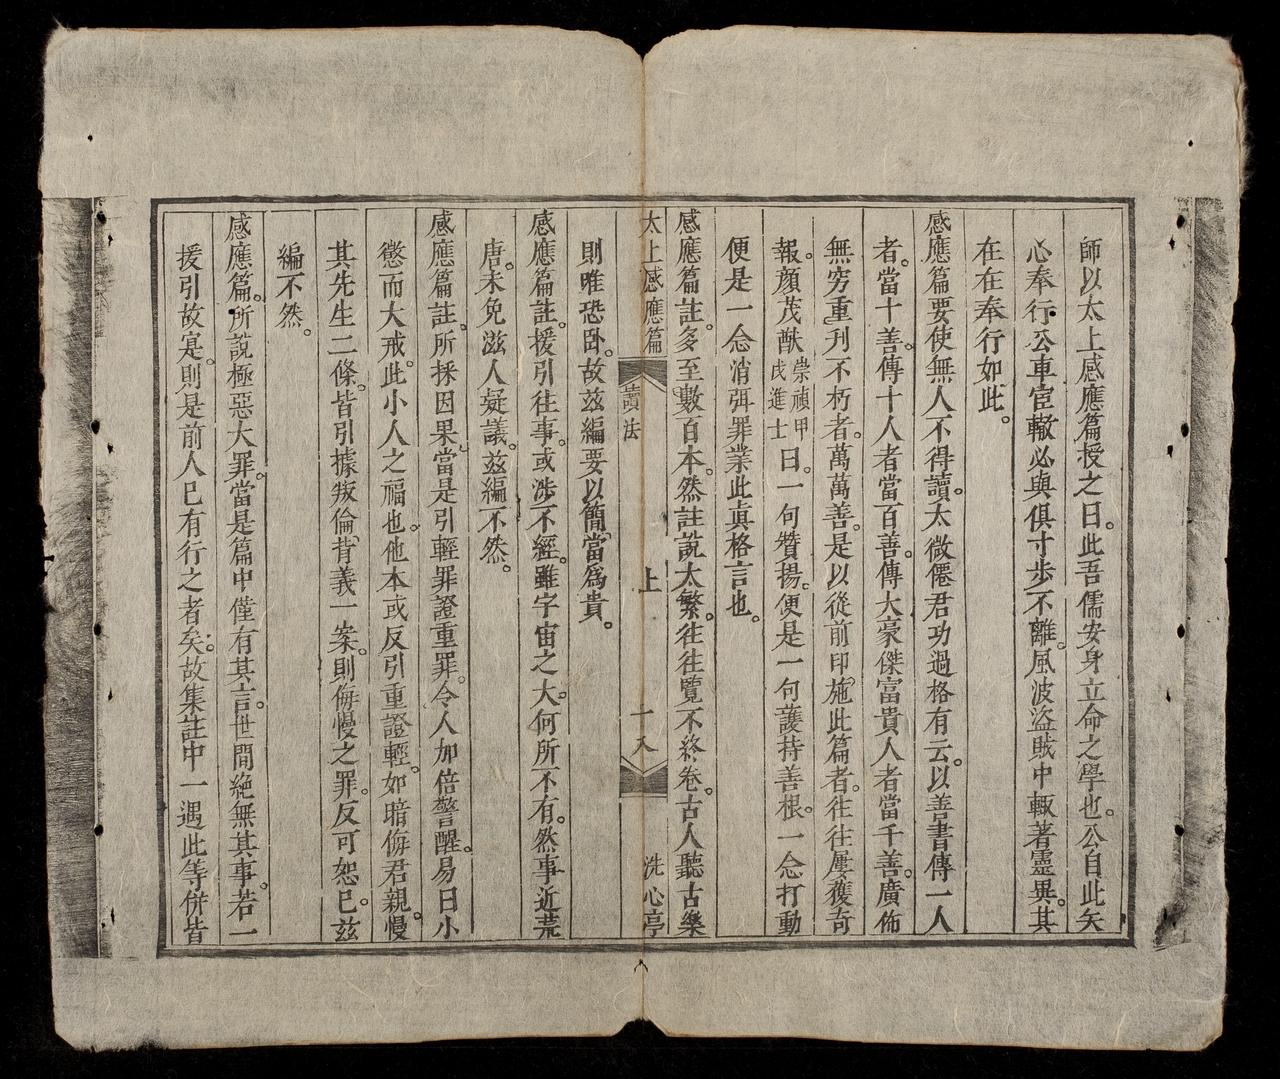 師以太上感應篇授之曰。此吾儒安身立命之學也。公自此矢
心奉行。公車宦轍必與俱。寸步不離。風波盜賊中輒著靈異。其
在在奉行如此。
感應篇要使無人不得讀。太微僊君功過格有云。以善書傳一人
者。當十善。傳十人者當百善。傳大豪傑富貴人者當千善。廣佈
無窮重刋不朽者。萬萬善。是以從前印施此篇者。往往屢獲奇
報。顏茂猷崇禎甲戌進士曰。一句贊揚。便是一句護持善根。一念打動
便是一念消弭罪業此眞格言也。
感應篇註。多至數百本。然註說太繁。往往覽不終卷。古人聽古樂
太上感應篇 讀法 上 一八 洗心亭
則唯恐臥。故茲編要以簡當爲貴。
感應篇註。援引往事。或涉不經。雖宇宙之大。何所不有。然事近荒
唐。未免滋人疑議。茲編不然。
感應篇註。所採因果當是引輕罪證重罪。令人加倍警醒。易曰小
懲而大戒。此小人之福也。他本或反引重證輕。如暗侮君親。慢
其先生二條。皆引據叛倫背義一案。則侮慢之罪。反可恕已。茲
編不然。
感應篇。所說極惡大罪。當是篇中僅有其言。世間絶無其事。若一
援引故寔。則是前人已有行之者矣。故集註中一遇此等併皆